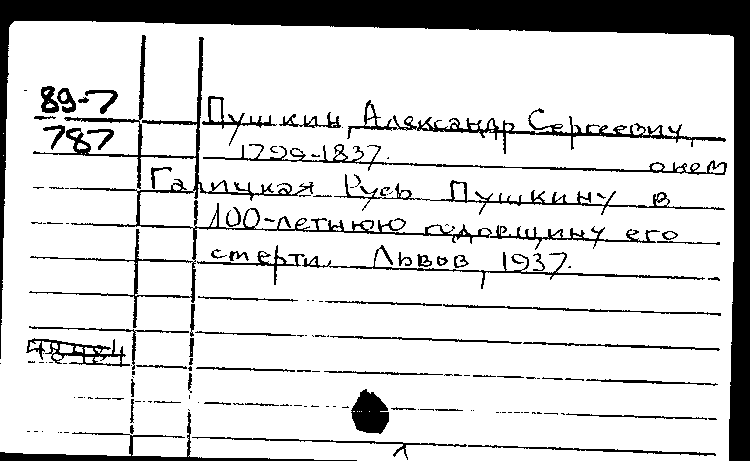 89-7
787
Пушкин, Александр Сергеевич,
1799-1837.
о нем
Галицкая Русь Пушкину в
100-летнюю годовщину его
смерти. Львов, 1937.